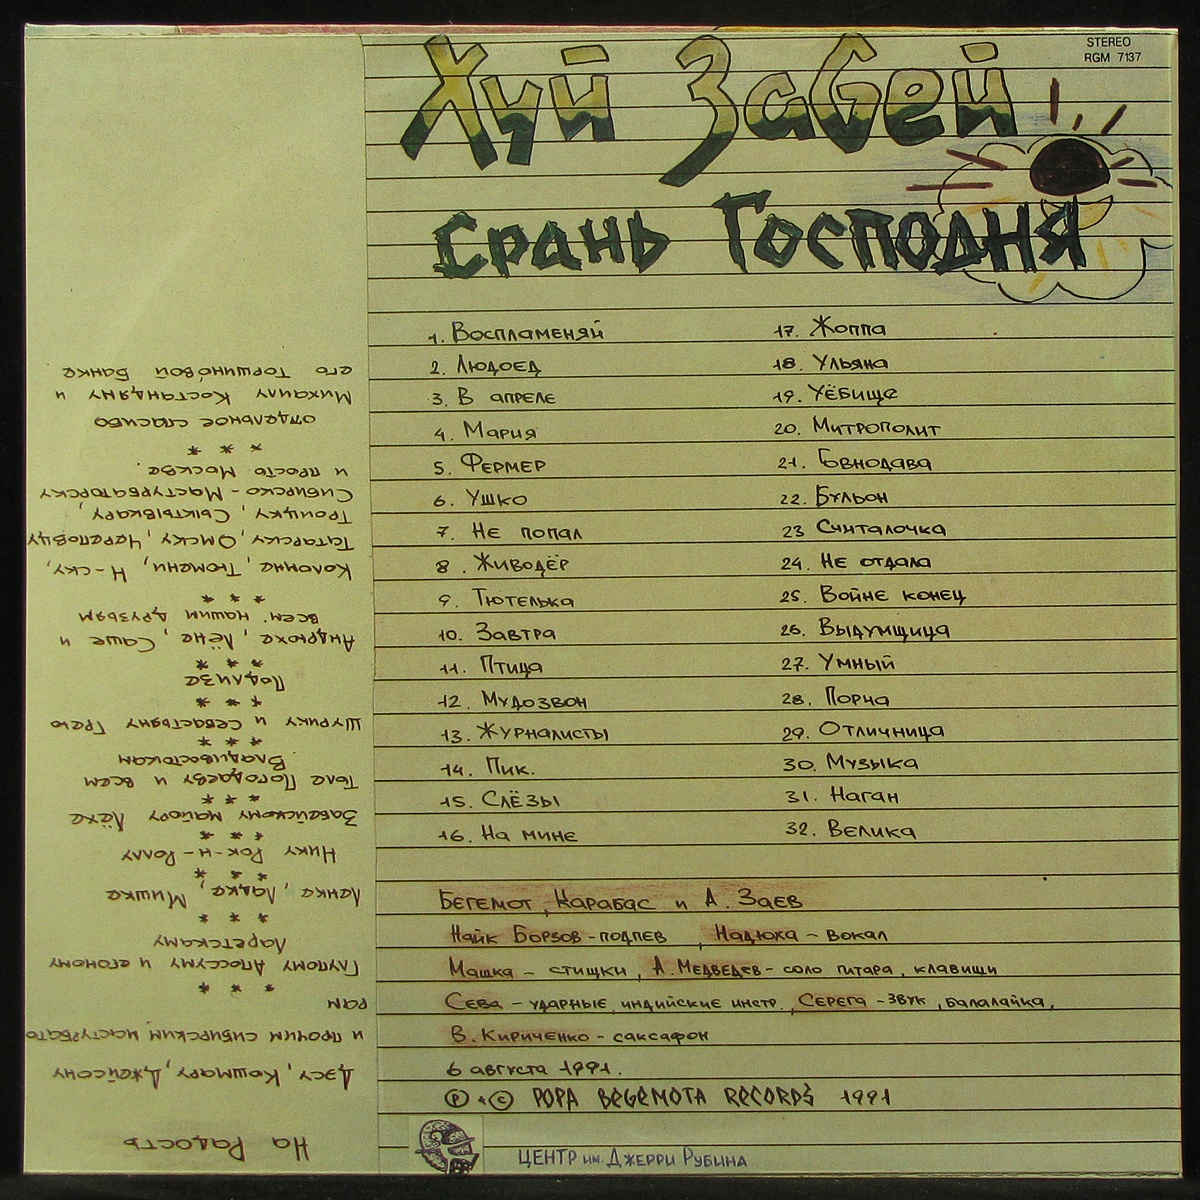 STEREO
RGM 7137
Хуй Забей
Срань Господня
1. Воспламеняй
2. Людоед
3. В апреле
4. Мария
5. Фермер
6. Ушко
7. Не попал
8. Живодёр
9. Тютелька
10. Завтра
11. Птица
12. Мудозвон
13. Журналисты
14. Пик.
15. Слёзы
16. На мине
17. Жоппа
18. Ульяна
19. Уёбище
20. Митрополит
21. Говнодава
22. Бульон
23 Считалочка
24. Не отдала
25. Войне конец
26. Выдумщица
27. Умный
28. Порча
29. Отличница
30. Музыка
31. Наган
32. Велика
Бегемот, Карабас и А. Заев
Найк Борзов - подпев, Надюха - вокал
Машка - стишки, А. Медведев - соло гитара, клавиши
Сева - ударные, индийские инстр., Серега - звук, балалайка,
В. Кириченко - саксафон
6 августа 1991.
Ⓟ & Ⓒ POPA BEGEMOTA RECORDS 1991
ЦЕНТР им. Джерри Рубина
На Радость
Дэсу, Кошмару, Джейсону
и прочим сибирским мастурбато
рам
* * *
Глупому Апоссуму и егоному
Ларетскому
* * *
Ленке, Ладке, Мишке
* * *
Нику Рок-н-Роллу
* * *
Забейскому майору Лёхе
* * *
Толе Погодаеву и всем
Владивостокам
* * *
Шурику и Севастьяну Грею
* * *
Подлизе
* * *
Андрюхе, Лёне, Саше и
всем нашим друзьям
* * *
Коломне, Тюмени, Н-ску,
Татарску, Омску, Череповцу
Троицку, Сыктывкару,
Сибирско-Мастурбаторску
и просто Москве.
* * *
отдельное спасибо
Михаилу Костандяну и
его Торшиновой Банке